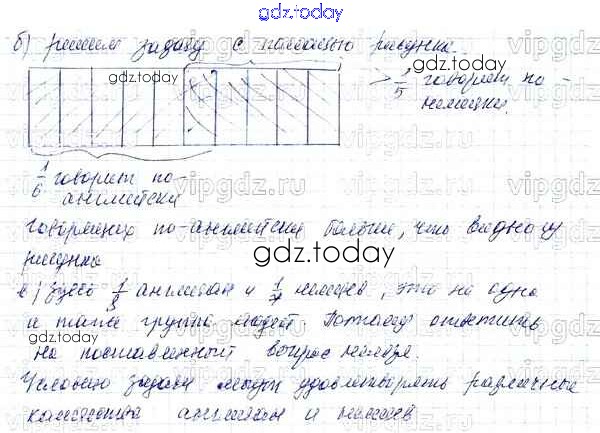 gdz.today
б) решим задачу с помощью рисунка.
gdz.today
1/5 говорят по-
немецки.
1/6 говорят по-
английски
Говорящих по-английски больше, что видно из
рисунка
gdz.today
в) Здесь 1/9 англичан и 1/7 немцев, это не одна
и таже группа людей. Поэтому ответить
на поставленный вопрос нельзя.
Условию задачи могут удовлетворять различные
количества англичан и немцев
gdz.today